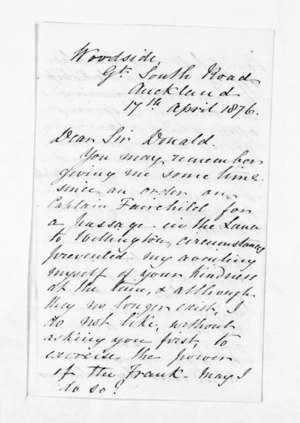 Woodside,
Gt. South Road
Auckland
17th April 1876.
Dear Sir Donald.
You may remember
giving me some time
since an order on
Captain Fairchild for
a passage in the Luna
to Wellington, circumstances
prevented my availing
myself of your kindness
at the time, & although
they no longer exist, I
do not like, without
asking you first, to
exercise the power
of the Frank. May I
do so?